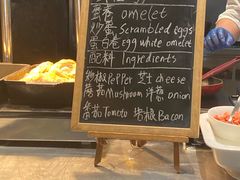 蛋卷 omelet
炒蛋 Scrambled eggs
蛋白卷 Egg white omelet
配料 Ingredients
辣椒 Pepper 芝士 cheese
蘑菇 Mushroom 洋葱 onion
番茄 Tomato 培根 Bacon